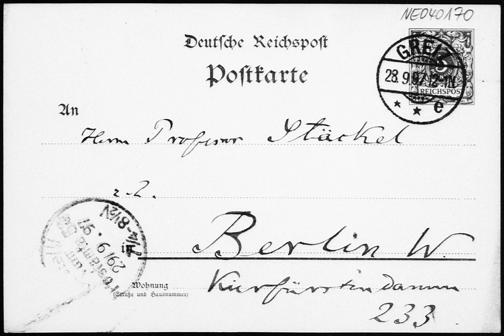 NE040170
Deutsche Reichspost
Postkarte
GREIZ
28.9.97.12-1N.
* * e
REICHSPOST
An
Herrn Professor Stäckel
z. Z.
in Berlin W.
Wohnung
(Straße und Hausnummer)
Kurfürstendamm
233.
29/9.97.
8½V